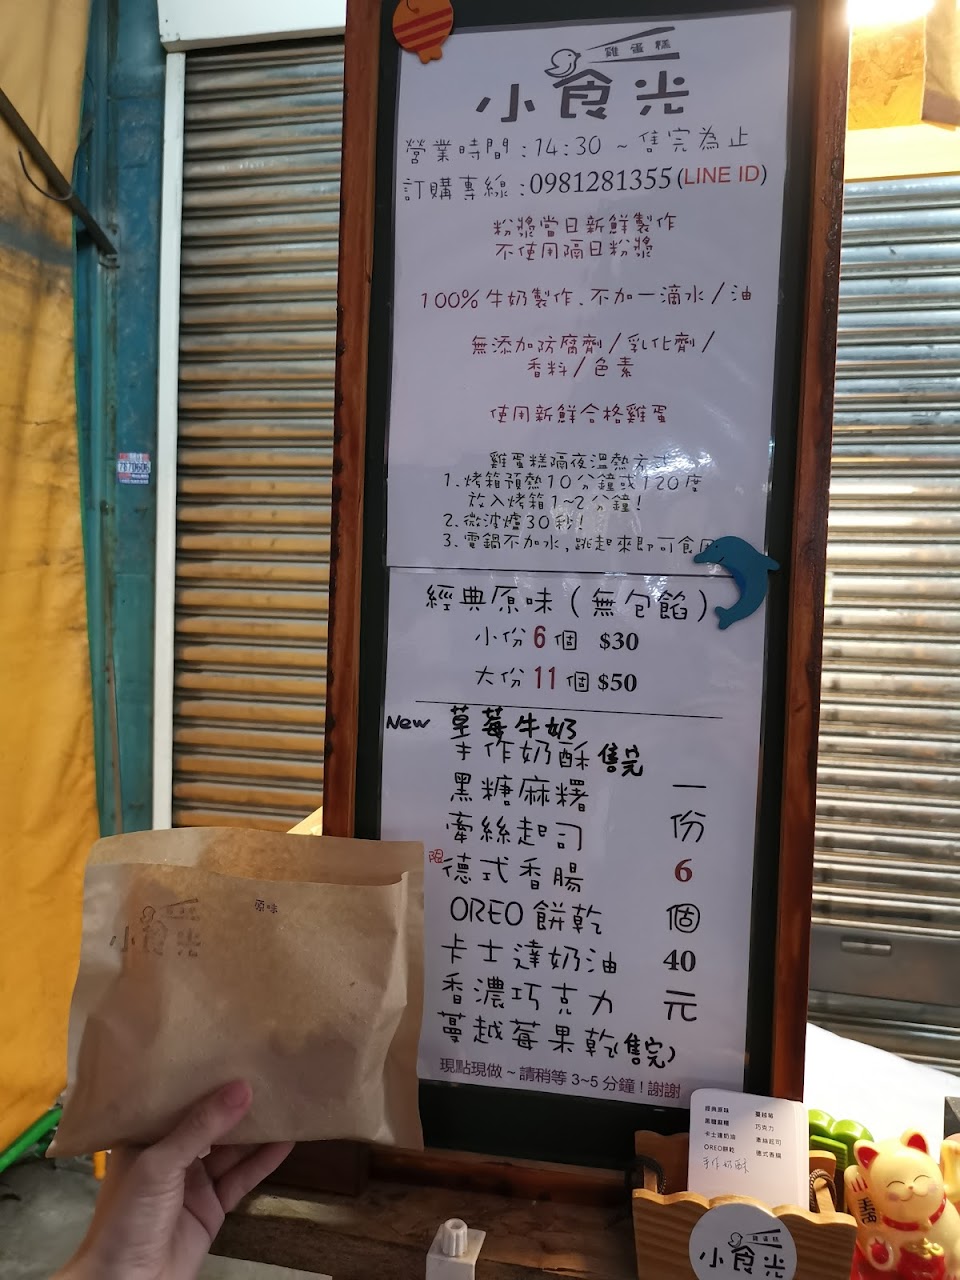 雞蛋糕
小食光
營業時間:14:30 ~ 售完為止
訂購專線:0981281355(LINE ID)
粉漿當日新鮮製作
不使用隔日粉漿
100%牛奶製作、不加一滴水/油
無添加防腐劑/乳化劑/
香料/色素
使用新鮮合格雞蛋
雞蛋糕隔夜溫熱方式
1.烤箱預熱10分鐘或120度
放入烤箱1~2分鐘!
2.微波爐30秒!
3.電鍋不加水,跳起來即可食用
經典原味(無包餡)
小份6個 $30
大份11個 $50
New 草莓牛奶
手作奶酥售完
黑糖麻糬
牽絲起司
限德式香腸
OREO餅乾
卡士達奶油
香濃巧克力
蔓越莓果乾(售完)
一份6個40元
現點現做~請稍等3~5分鐘!謝謝
原味
雞蛋糕
小食光
經典原味 蔓越莓
黑糖麻糬 巧克力
卡士達奶油 牽絲起司
OREO餅乾 德式香腸
手作奶酥
雞蛋糕
小食光
7870606